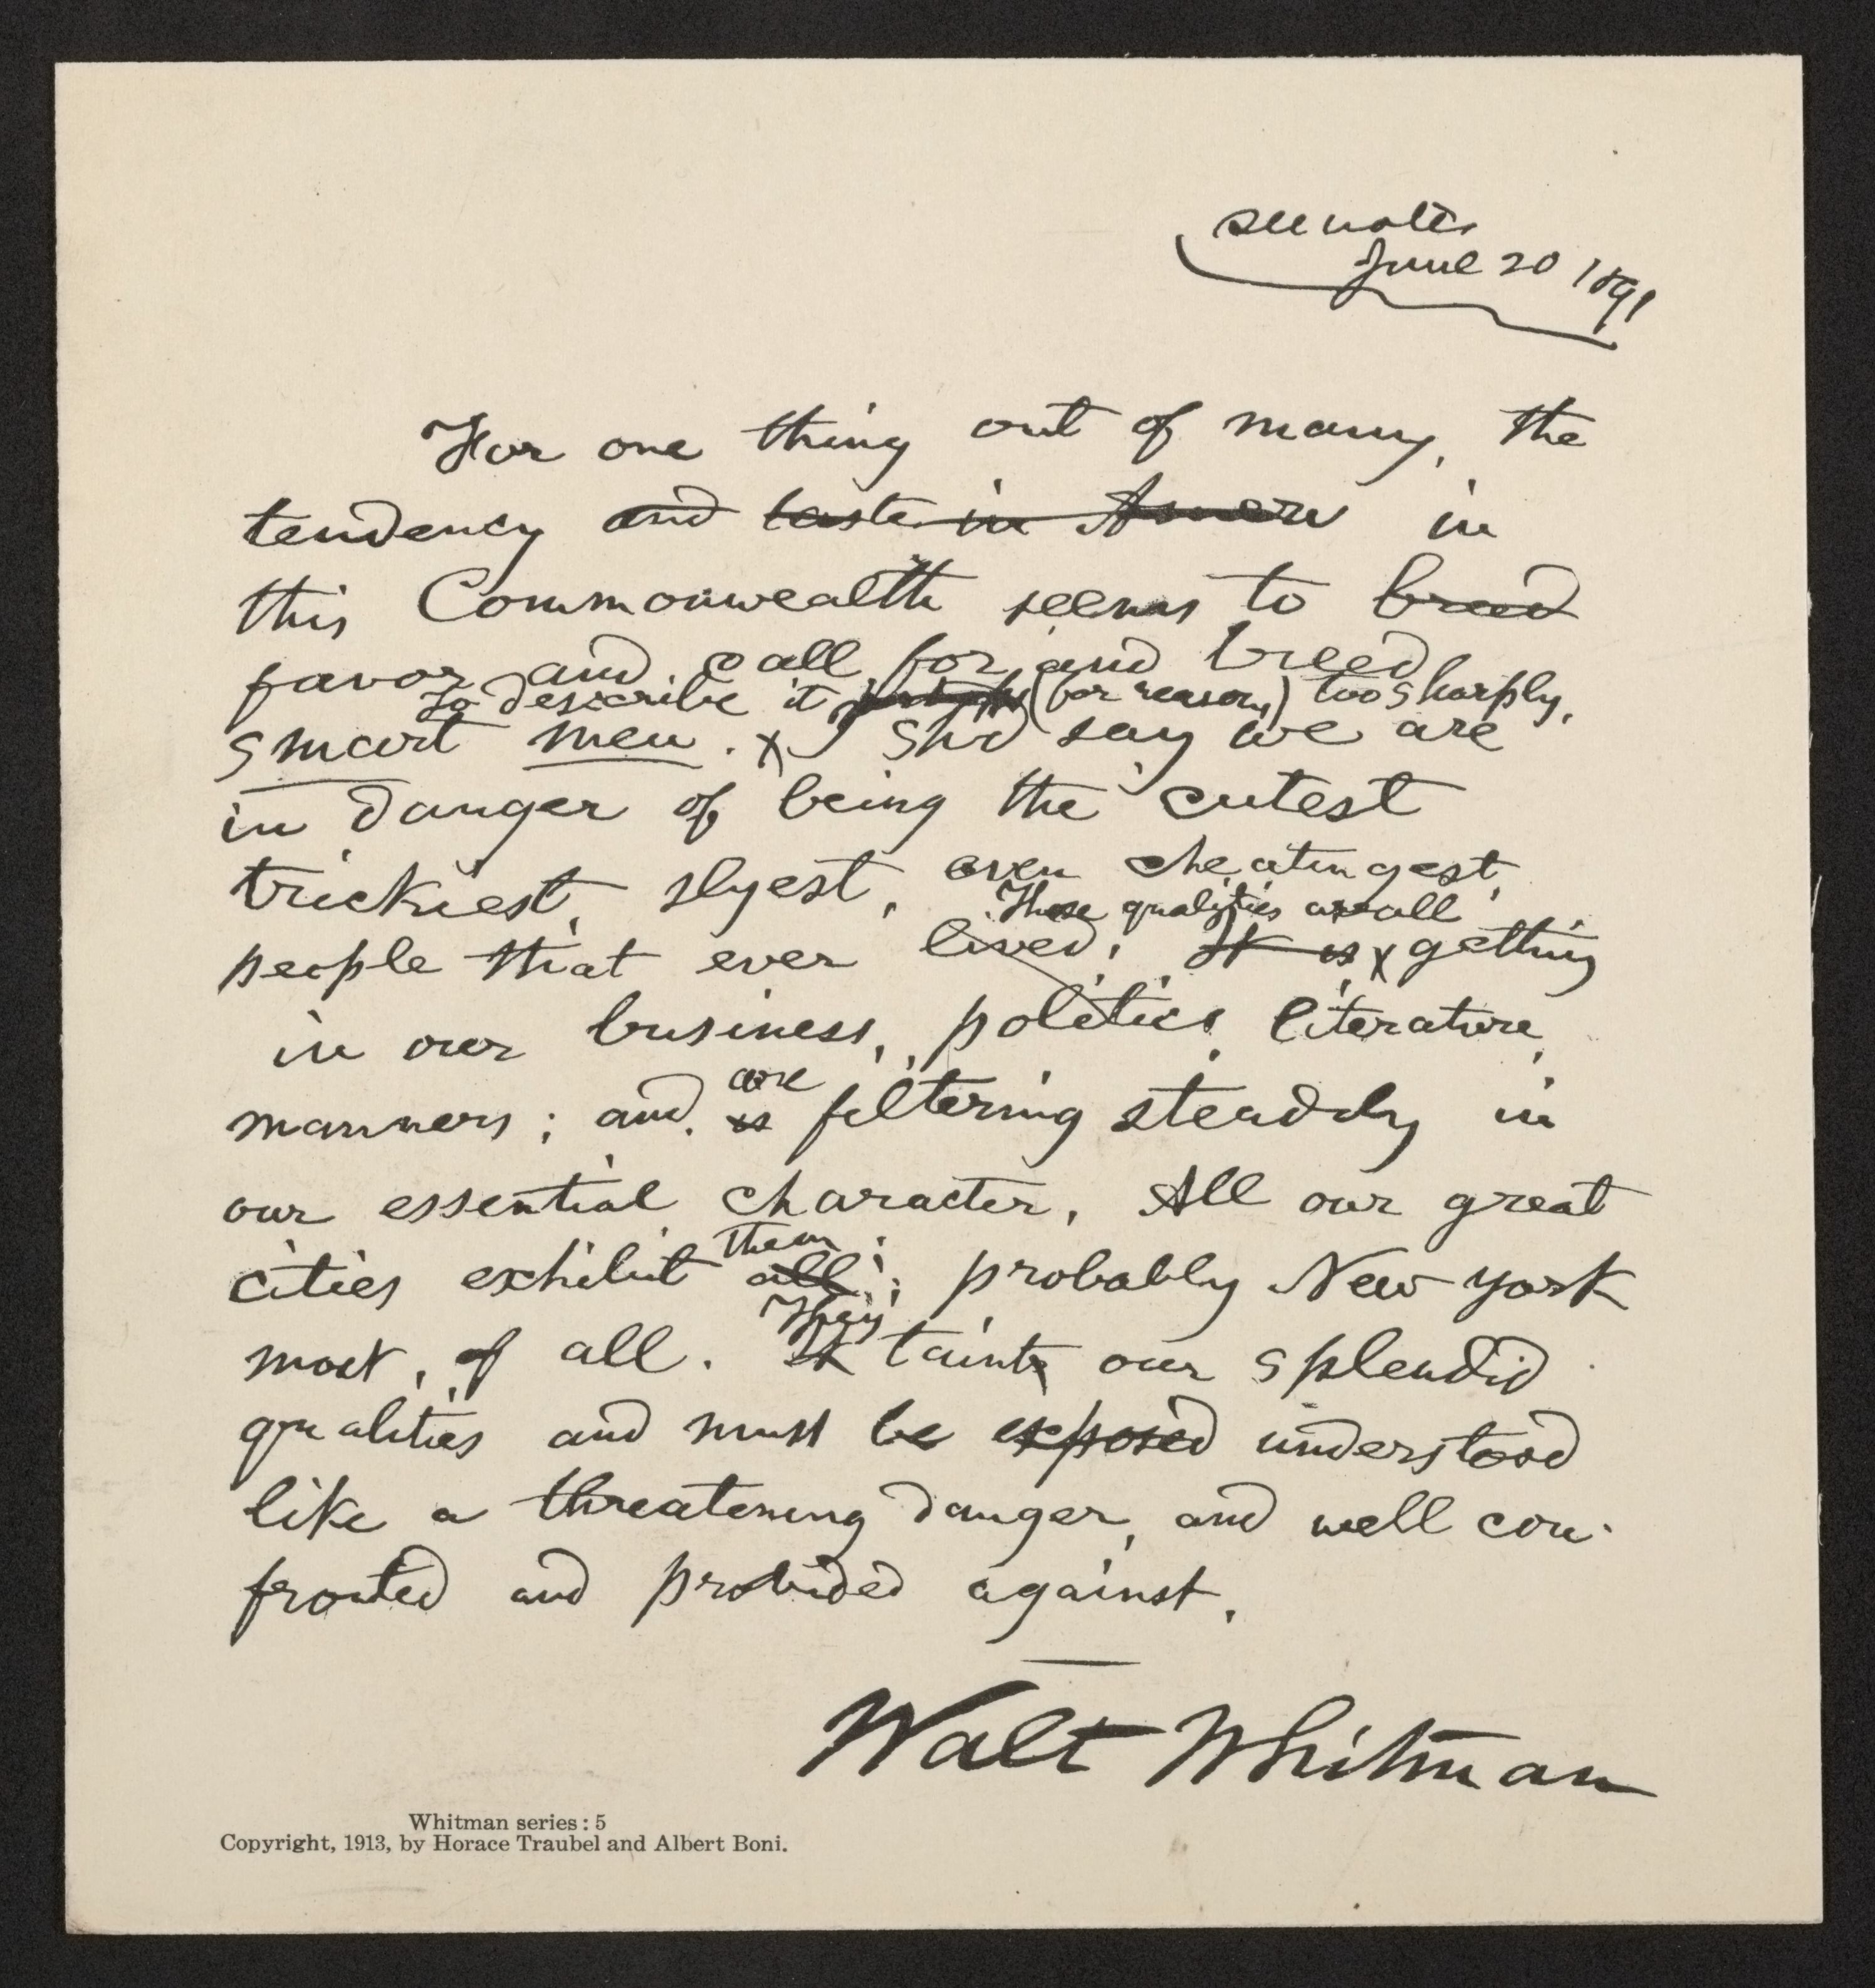 see notes
June 20 1891
For one thing out of many, the
tendency and taste in Amere in
this Commonwealth seems to breed
favor and call for and breed
To describe it (for reasons) too sharply,
smart men. x I shd say we are
in danger of being the cutest
trickiest, slyest, even cheatingest,
people that ever lived. It is x getting
These qualities are all
in our business, politics, literature,
manners; and is filtering steadily in
are
our essential character. All our great
cities exhibit all; probably New York
them;
most, of all. It taints our splendid
They
qualities and must be exposed understood
like a threatening danger, and well con-
fronted and provided against.
Walt Whitman
Whitman series: 5
Copyright, 1913, by Horace Traubel and Albert Boni.